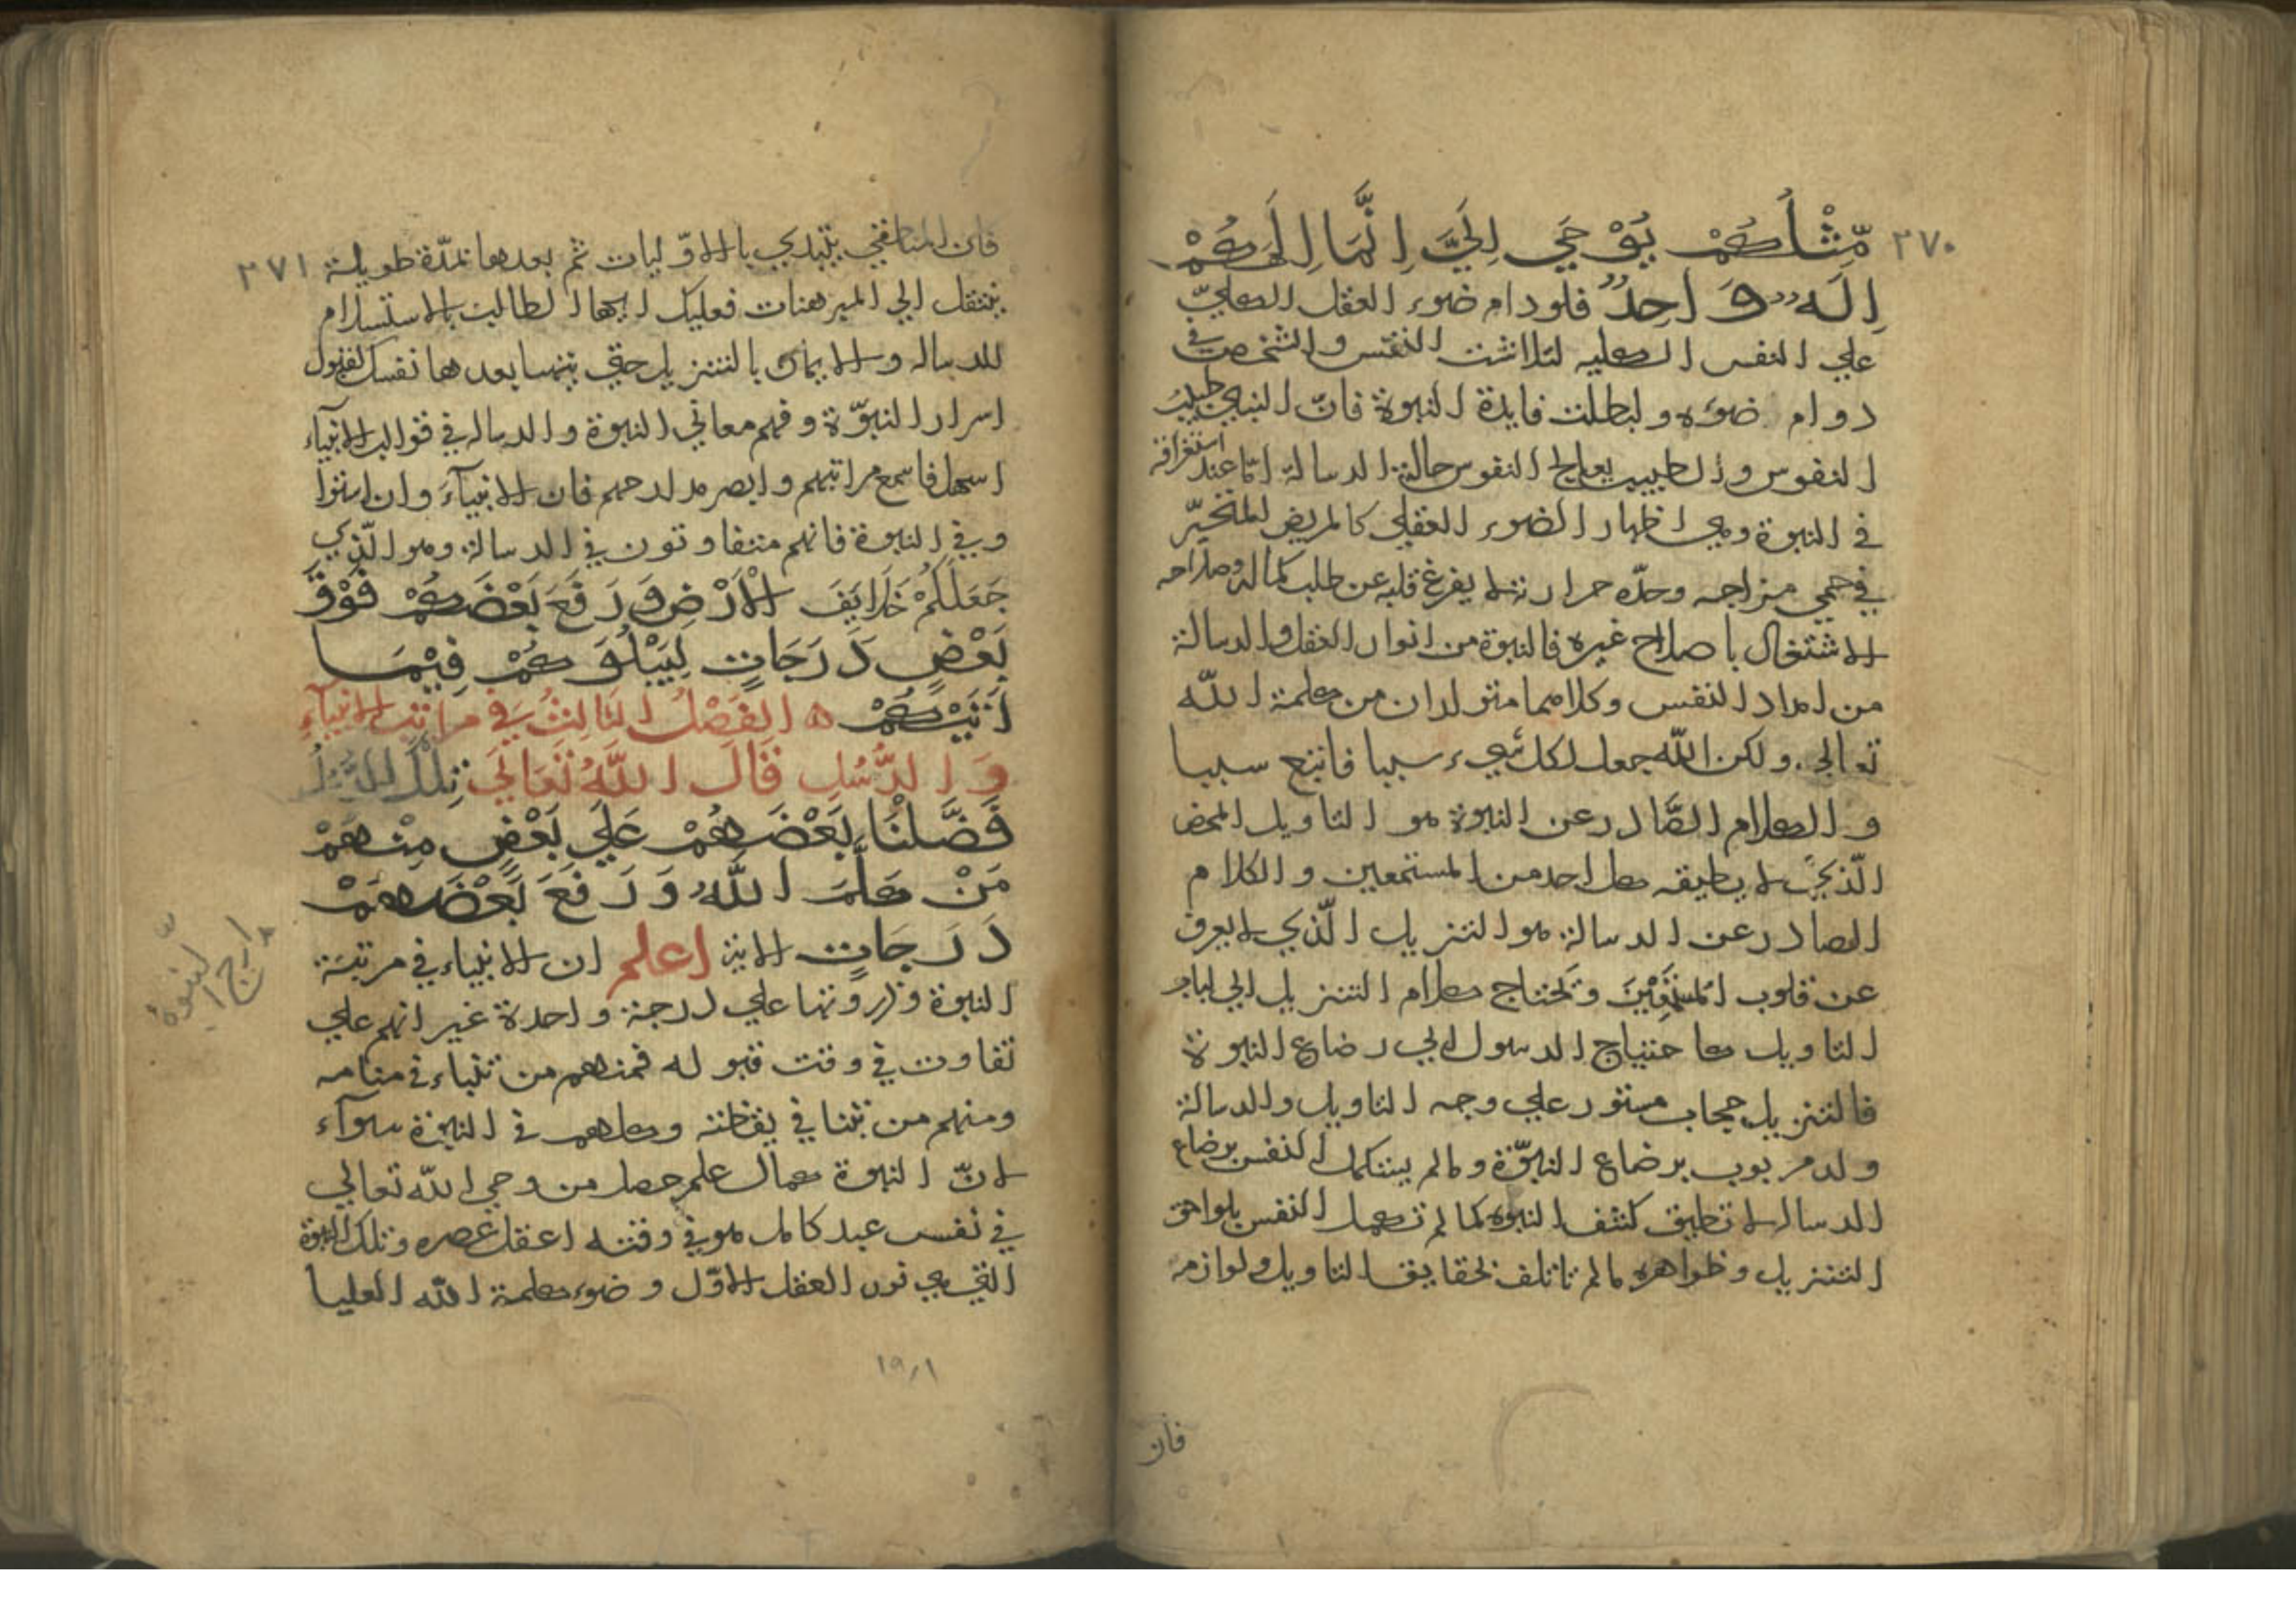 ٢٧٠
مِّثْلُكُمْ يُوْحَي اِلَيَّ اِنَّمَا اِلَهُكُمْ
اِلَهٌ وَاحِدٌ فلودام ضوء العقل الكليّ
علي النفس الكليه لتلاشت النفس والشخص في
دوام ضوءه ولبطلت فايدة النبوة فانّ النبي طبيب
النفوس والطبيب يعالج النفوس حالة الرسالة امّا عند استغراقه
في النبوة وهي اظهار الضوء العقلي كالمريض المتحيّر
في حمي مزاجه وحدّه حرارته لا يفرغ قلبه عن طلب كماله وصلاحه
الاشتغال باصلاح غيره فالنبوة من انوار العقل والرسالة
من امداد النفس وكلاهما متولدان من كلمة اللّه
تعالي ولكن اللّه جعل لكل شيء سببا فاتبع سببا
والكلام الصّادر عن النبوة هو التاويل المحض
الّذي لا يطيقه كل احد من المستمعين والكلام
الصادر عن الرسالة هو التنزيل الّذي لا يعرف
عن قلوب وتحتاج كلام التنزيل الي لباب
التاويل كاحتياج الرسول الي رضاع النبوة
فالتنزيل حجاب مستور علي وجه التاويل والرسالة
ولد مربوب برضاع النبوّة ومالم يستكمل النفس برضاع
الرساله لا تطيق كشف النبوه كما لم تكمل النفس بلواحق
التنزيل وظواهره مالم تاتلف بحقايق التاويل ولوازمه
فان
٢٧١
فان يبتدي بالاوّليات ثم بعدها بمدّة طويلة
ينتقل الي المبرهنات فعليك ايها الطالب بالاستسلام
للرساله والايمان بالتنزيل حتي يتهيا بعدها نفسك لقبول
اسرار النبوّة وفهم معاني النبوة والرساله في قوالب الانبياء
اسهل فاسمع مراتبهم وابصر مدارجهم فان الانبيآء وان استوا
وفي النبوة فانهم متفاوتون في الرسالة وهو الّذي
جَعَلَكُمْ خَلَايَفَ الْاَرْضِ وَرَفَعَ بَعْضَكُمْ فَوْقَ
بَعْضٍ دَرَجَاتٍ لِيَبْلُوَكُمْ فِيْمَا
اَتَيْكُمْ ه الفَصْلُ الثَالِثُ فِي مَراتِب الانبِيآءِ
وَالرُّسُلِ قَالَ اللَّهُ تَعَالَي تِلْكَ الرُّسُلُ
فَضَّلْنَا بَعْضَهُمْ عَلَي بَعْضٍ مِنْهُمْ
مَنْ كَلَّمَ اللَّهُ وَرَفَعَ بَعْضَهُمْ
دَرَجَاتٍ الاية اعلم ان الانبياء في مرتبة
النبوة وذروتها علي درجة واحدة غير انهم علي
تفاوت في وقت قبوله فمنهم من تنباء في منامه
ومنهم من تنبا في يقظته وكلهم في النبوة سوآء
لانّ النبوة كمال علم حصل من وحي اللّه تعالي
في نفس عبد كامل هو في وقته اعقل عصره وتلك النبوة
التي هي نور العقل الاوّل وضوء كلمة اللّه العليا
١٩/١